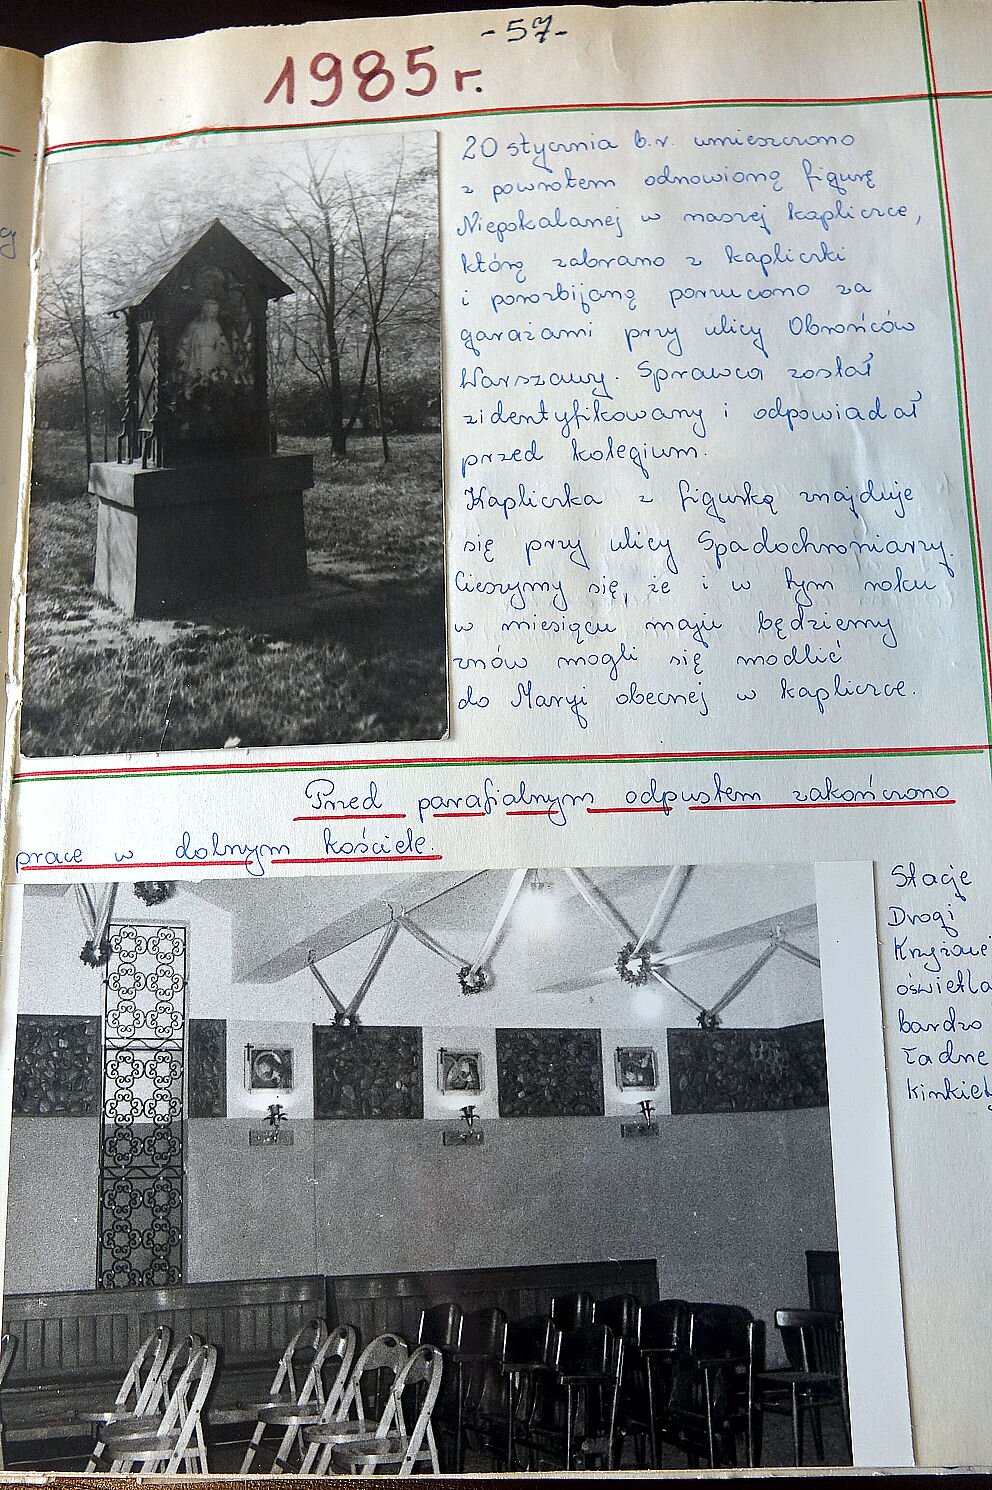 -57-
1985 r.
20 stycznia b.r. umieszczono
z powrotem odnowioną figurę
Niepokalanej w naszej kapliczce,
którą zabrano z kapliczki
i porozbijaną porzucono za
garażami przy ulicy Obrońców
Warszawy. Sprawca został
zidentyfikowany i odpowiadał
przed kolegium.
Kapliczka z figurką znajduje
się przy ulicy Spadochroniarzy.
Cieszymy się, że i w tym roku
w miesiącu maju będziemy
znów mogli się modlić
do Maryi obecnej w kapliczce.
Przed parafialnym odpustem zakończono
prace w dolnym kościele.
Stacje
Drogi
Krzyżowej
oświetla
bardzo
ładne
kinkiety